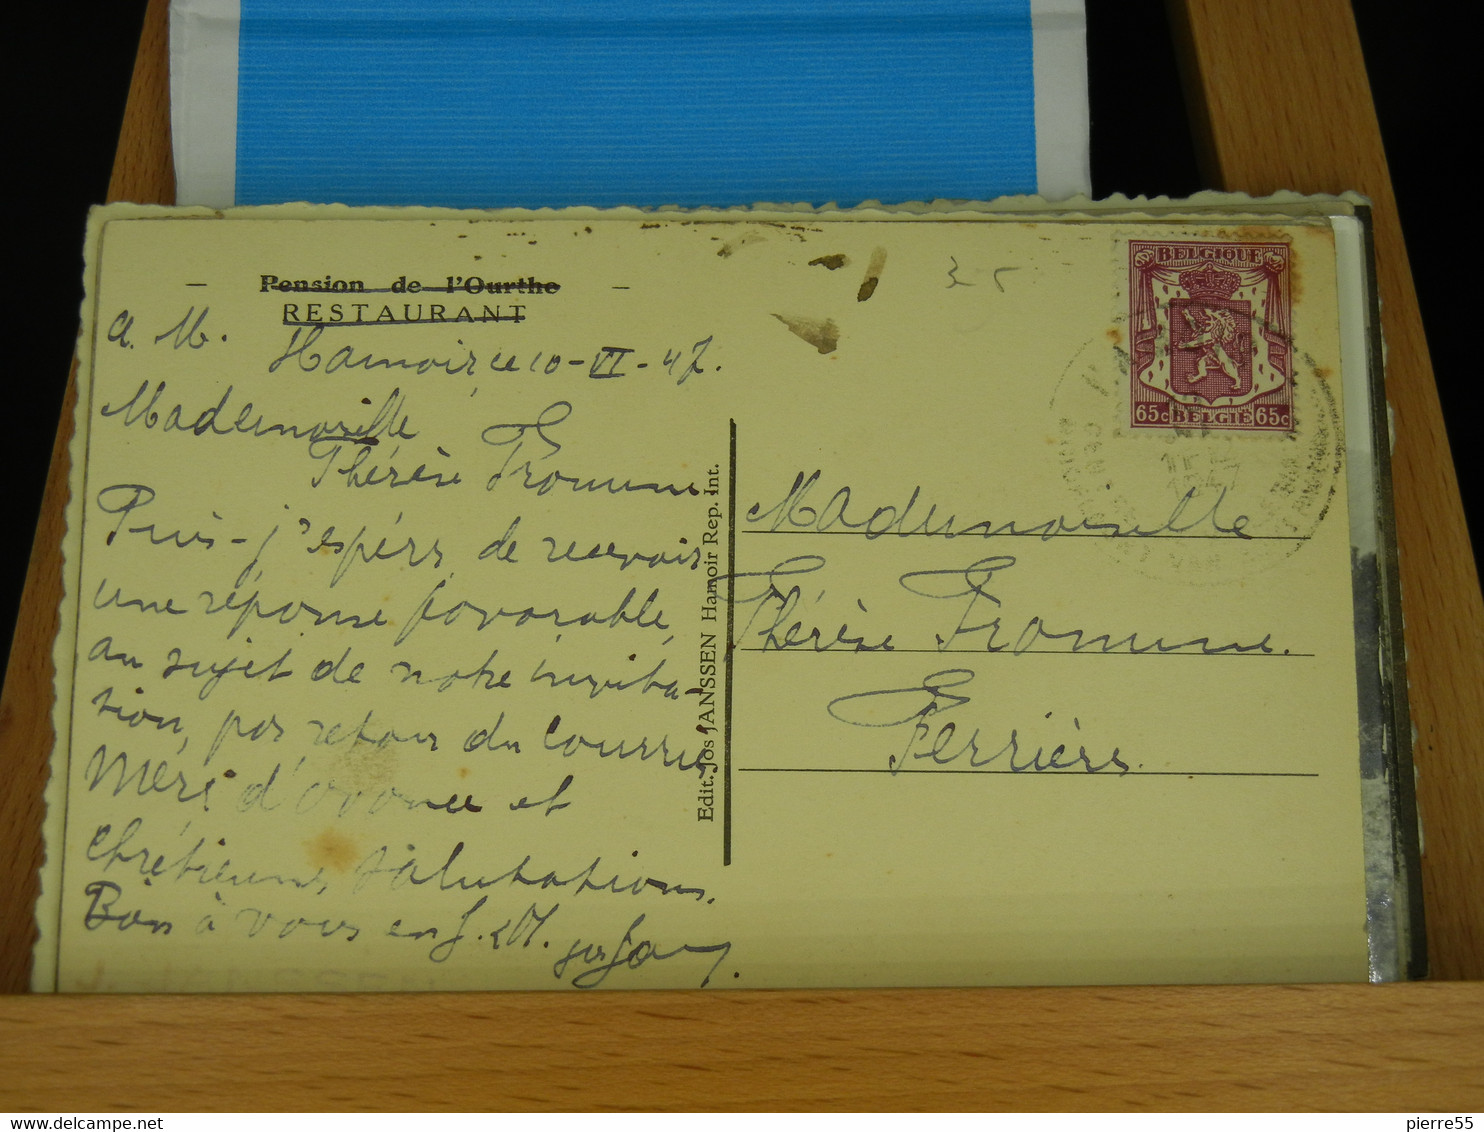 Pension de l'Ourthe
RESTAURANT
a. M.
Hamoir, ce 10-VI-47.
Mademoiselle
Thérèse Fromme
Puis-j'espérer de recevoir
une réponse favorable,
au sujet de notre invita-
tion, par retour du courrier
Merci d'avance et
chrétiennes salutations.
Bien à vous en J. et M.
Edit. Jos JANSSEN Hamoir Rep. Int.
35
BELGIQUE
65c BELGIE 65c
1947
Mademoiselle
Thérèse Fromme.
Ferrières.
pierre55